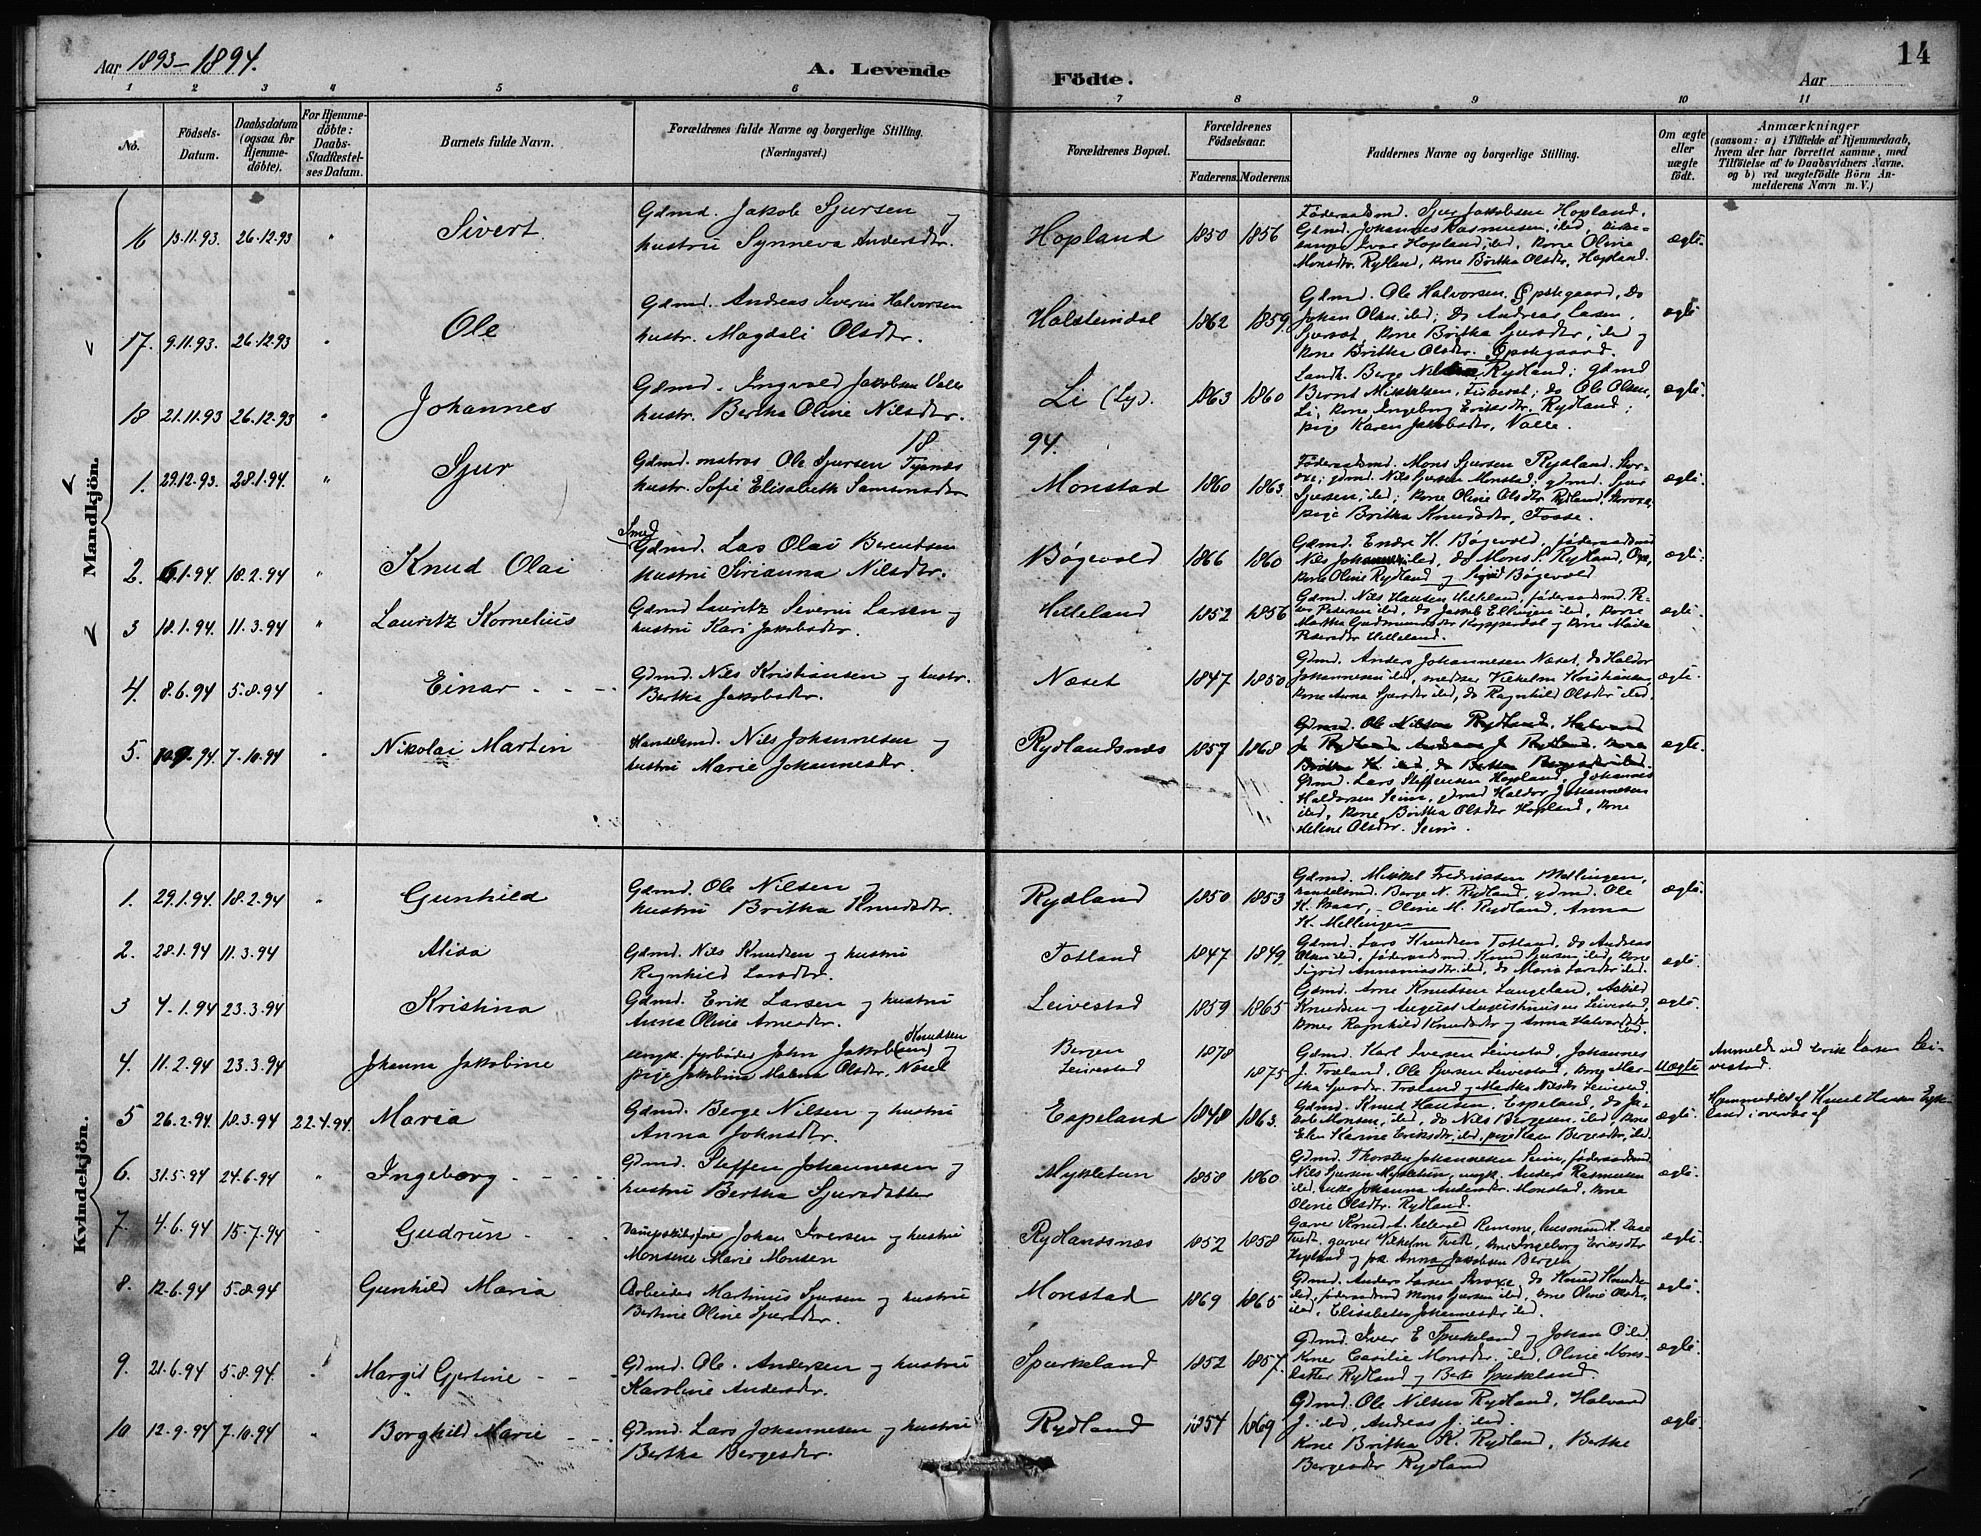 Aar 1893-1894.
A. Levende Födte.
Aar
14
1 2 3 4 5 6 7 8 9 10 11
No.
Födsels-Datum.
Daabsdatum (ogsaa for Hjemme-döbte).
For Hjemme-döbte: Daabs-Stadfæstel-ses Datum.
Barnets fulde Navn.
Forældrenes fulde Navne og borgerlige Stilling. (Næringsvei.)
Forældrenes Bopæl.
Forældrenes Födselsaar.
Faderens. Moderens.
Faddernes Navne og borgerlige Stilling.
Om ægte eller uægte födt.
Anmærkninger
(saasom: a) i Tilfælde af Hjemmedaab, hvem der har forrettet samme, med Tilföielse af to Daabsvidners Navne, og b) ved uægtefödte Börn An-melderens Navn m. V.)
Mandkjön.
16 13.11.93. 26.12.93 " Sivert
Gdmd. Jakob Sjursen og
hustru Synneva Andersdtr.
Hopland 1850 1856
Föderaadsmd. Sjur Jakobsen Hopland.
Gdmd. Johannes Rasmussen, ibd,
Ivar Hopland, ibd, kone Oline
Monsdtr. Rydland, kone Britha Olsdtr. Hopland.
ægte.
17. 9.11.93. 26.12.93 " Ole
Gdmd. Andreas Severin Halvorsen
hustr. Magdeli Olsdtr.
Holsteindal 1862 1859.
Gdmd. Ole Halvorsen Opstegaard, do
Johan Olsen, ibd; do Andreas Larsen,
kone Britha Sjursdtr, ibd og
kone Britha Olsdtr. Opstegaard.
ægte
18 21.11.93 26.12.93 " Johannes
Gdmd. Ingvald Jakobsen Valle
hustr. Bertha Oline Nilsdtr.
Li (Ly). 1863 1860
Landh. Berge Nilsen, Rydland; gdmd
Bernt Mikkelsen, do Ole Olsen,
Li, kone Ingeborg Eriksdtr. Rydland;
pige Karen Jakobsdtr, Valle.
ægte.
18 94.
1. 29.12.93. 28.1.94. " Sjur
Gdmd. Ole Sjursen
hustr. Sofie Elisabeth Samsonsdtr
Monstad 1860 1863.
Föderaadsmd. Mons Sjursen Rydland.
gdmd. Nils Sjursen Monstad, gdmd. Sjur
Sjursen, ibd; kone Oline Olsdtr Rydland,
pige Britha Knudsdtr, Fosse.
ægte.
2. 6.1.94. 18.2.94 " Knud Olai
Smed
Gdmd. Lars Olai Berentsen
hustru Sirianna Nilsdtr.
Bøgevold 1866 1860
Gdmd. Endre H. Bøgevold, föderaadsmd
Nils ibd, do Mons S. Rydland,
kone Oline Rydland og Sigrid Bøgevold
ægte.
3 18.1.94. 11.3.94 " Lauritz Kornelius
Gdmd Lauritz Severin Larsen og
hustru Kari Jakobsdtr.
Helleland 1852 1856
Gdmd. Nils Hansen Helleland, föderaadsmd. Pe-
der Pedersen ibd, do Jakob Ellingsen ibd, kone
Martha Gudmundsdtr Kopperdal og kone
Pedersdtr Helleland.
ægte.
4. 8.6.94 5.8.94 Einar
Gdmd. Nils Kristiansen og hustr.
Bertha Jakobsdtr.
Næset 1847 1850
Gdmd. Anders Johannesen Næset, do Haldor
Johannesen ibd, Vilhelm Kristiansen,
kone Anna Sjursdtr ibd, do Ragnhild Olsdtr ibd.
ægte.
5. 94. 7.10.94 " Nikolai Martin
Handelsmd. Nils Johannesen og
hustru Marie Johannesdtr.
Rydlandsnæs 1857 1868
Gdmd. Ole Nilsen Rydland, Halvard
J. Rydland, Andreas J. Rydland, kone
Britha K. ibd, do Bertha Bergesdtr ibd.
Gdmd. Lars Steffensen Hopland, Johannes
Haldorsen Seim, gdmd Haldor Johannesen
ibd, kone Britha Olsdtr Hopland, kone
Helene Olsdtr. Seim.
ægte.
Kvindekjön.
1. 29.1.94. 18.2.94 " Gunhild
Gdmd. Ole Nilsen og
hustru Britha Knudsdtr.
Rydland 1850 1853
Gdmd. Mikkel Fredriksen Mellingen,
handelsmd. Berge N. Rydland, gdmd. Ole
K. Oline M. Rydland, Anna
K. Mellingen
ægte.
2. 28.1.94 11.3.94 Alida
Gdmd. Nils Knudsen og hustru
Ragnhild Larsdtr.
Totland 1847 1849.
Gdmd. Lars Knudsen Totland, do Andreas
Olsen ibd, föderaadsmd. Knud Sjursen ibd, kone
Sigrid Annaniasdtr ibd, do Maria Larsdtr ibd.
ægte.
3 7.1.94 23.3.94 Kristina
Gdmd. Erik Larsen og hustru
Anna Oline Arnesdtr.
Leivestad 1859 1865
Gdmd. Arne Knudsen Langeland, Askild
Knudsen og August Augustinusen Leivestad,
koner Ragnhild Knudsdtr og Anna Halvorsdtr
ibd.
ægte
4. 11.2.94 23.3.94 Johanna Jakobine
ungk. fyrböder John Jakob(sen) Knudsen og
pige Jakobine Malene Olsdtr.
Bergen
Leivestad 1878 1875
Gdmd. Karl Iversen Leivestad, Johannes
J. Træland, Ole Sjursen Leivestad, kone Mar-
tha Sjursdtr. Træland og Martha Nilsdtr Leivestad.
uægte
Anmeldt ved Erik Larsen Lei-
vestad.
5 26.2.94 18.3.94 22.4.94 Maria
Gdmd. Berge Nilsen og hustru
Anna Johnsdtr.
Espeland 1848 1863.
Gdmd. Knud Hansen Espeland, do Ja-
kob Monsen, ibd, do Nils Bergesen, ibd, kone
Elen Karine Eriksdtr, ibd, pige Bergesdtr, ibd.
ægte.
Hjemmedöbt af Knud Hansen
6. 31.5.94 24.6.94 " Ingeborg
Gdmd. Steffen Johannesen og
hustru Bertha Sjursdatter
Mykletun 1858 1860
Gdmd. Thorsten Johannesen Seim, föderaadsmd.
Nils Sjursen Mykletun, ungk. Anders Rasmussen
ibd, enke Johanna Andersdtr. Monstad, kone
Oline Olsdtr. Rydland.
ægte.
7. 4.6.94 15.7.94 Gudrun
Dampskibsförer Johan Iversen og hustru
Monsine Marie Monsen
Rydlandsnæs 1852 1858
Garver Knud
garver Vilhelm Tvedt, kone Ingeborg Eriksdtr
Hopland og frk. Anna Jakobsen Bergen
ægte.
8. 12.6.94 5.8.94 Gunhild Maria
Arbeider Martinus Sjursen og hustru
Bertine Oline Sjursdtr.
Monstad 1869 1865
Gdmd. Anders Larsen do Knud Knudsen
ibd, föderaadsmd Mons Sjursen ibd, kone Oline Olsdtr,
ibd, Elisabeth Johannesdtr ibd.
ægte.
9. 21.6.94 5.8.94. Margit Gjertine
Gdmd. Ole Andersen og hustru
Karoline Andersdtr.
Spurkeland 1852 1857.
Gdmd. Iver E Spurkeland og Johan O ibd.
Koner Cesilie Monsdtr. ibd, Oline Mons-
datter Rydland og Berte Spurkeland.
ægte.
10 12.9.94 7.10.94 " Borghild Marie
Gdmd. Lars Johannesen og hustru
Bertha Bergesdtr.
Rydland 1854 1869
Gdmd. Ole Nilsen Rydland, Halvard
J. ibd, Andreas J. ibd.
Kone Britha K. Rydland, Bertha
Bergesdtr Rydland
ægte.